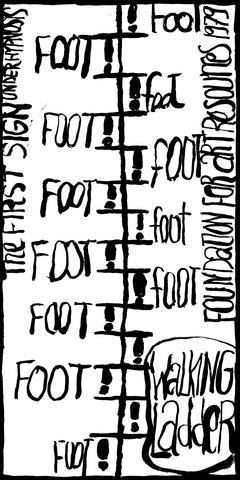 The FIRST SIGN UNDER HYPNOSIS
FOOT
FOOT
foot
FOOT
FOOT
FOOT
foot
FOOT
FOOT
FOOT
FOOT
FOOT
WALKING
LaddeR
FOUNDATION FOR aRT RESOURCES 1979